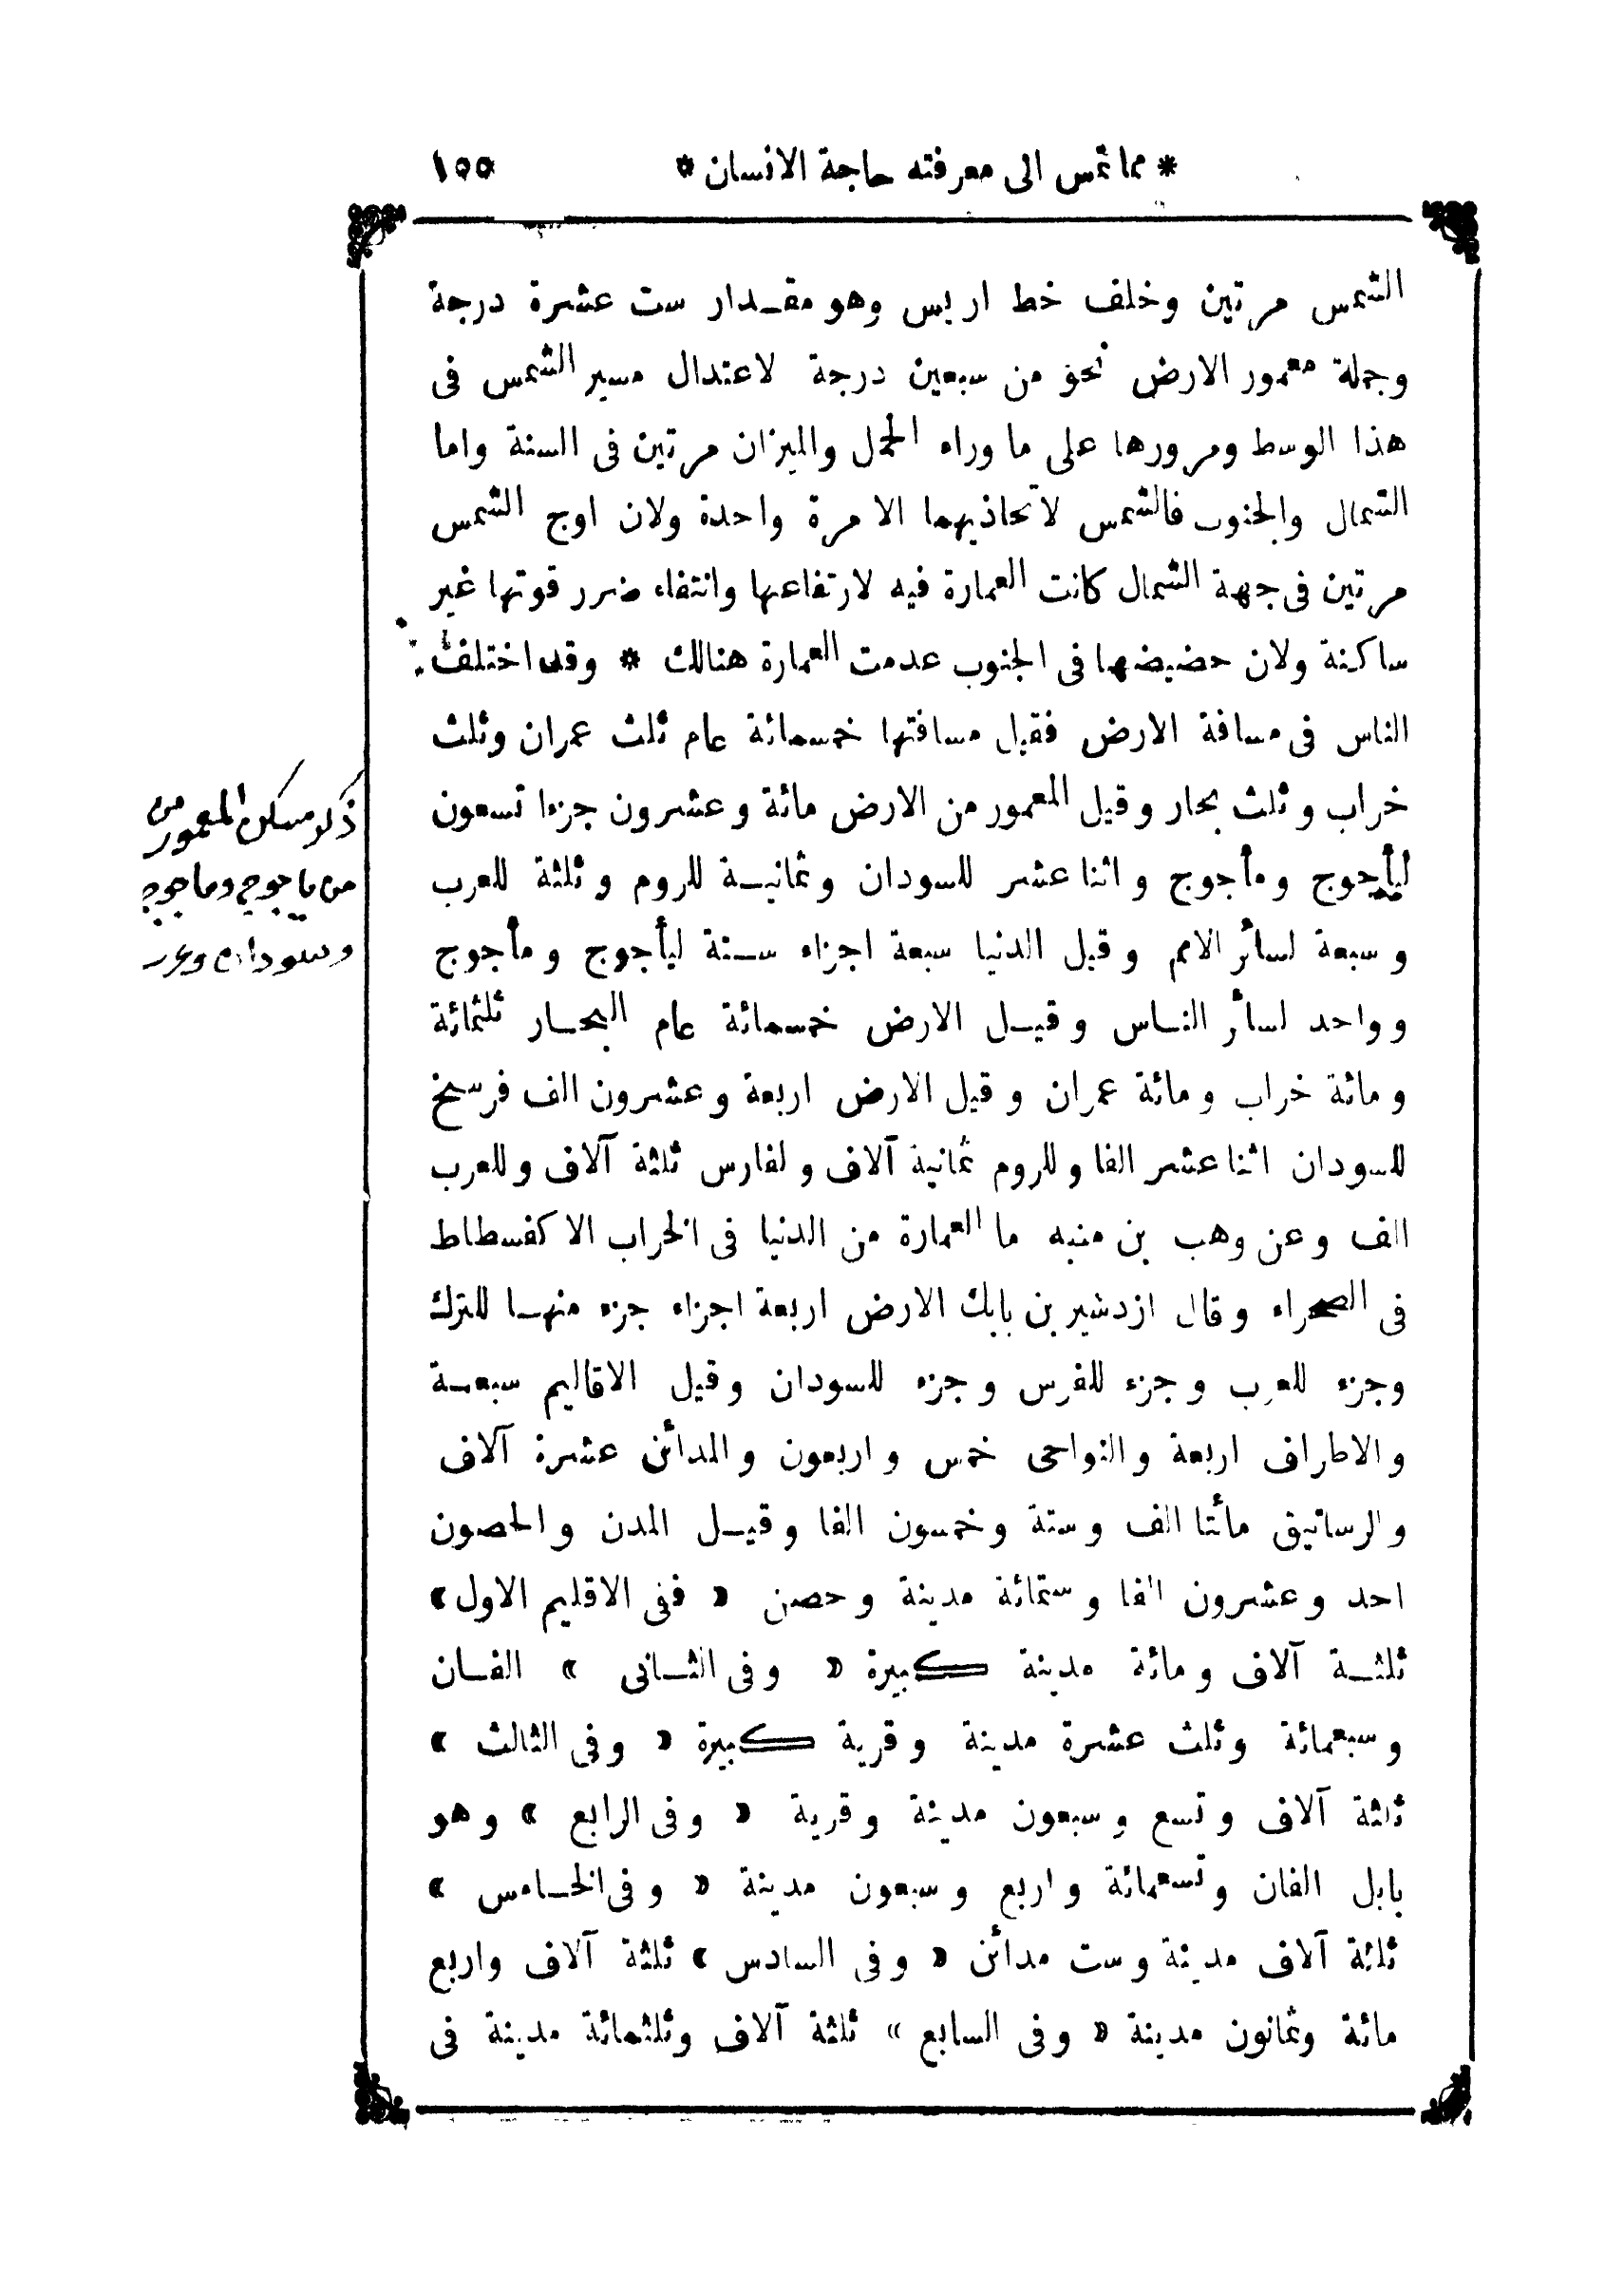 * مما تمس الى معرفته حاجة الانسان * ١٥٥
الشمس مرتين وخلف خط اريس وهو مقـدار ست عشرة درجة
وجملة معمور الارض نحو من سبعين درجة لاعتدال مسير الشمس فى
هذا الوسط ومرورها على ما وراء الحمل والميزان مرتين فى السنة واما
الشمال والجنوب فالشمس لاتحاذيهما الا مرة واحدة ولان اوج الشمس
مرتين فى جهة الشمال كانت العمارة فيه لارتفاعها وانتفاء ضرر قوتها غير
ساكنة ولان حضيضها فى الجنوب عدمت العمارة هنالك * وقد اختلف
الناس فى مسافة الارض فقيل مسافتها خمسمائة عام ثلث عمران وثلث
خراب وثلث بحار وقيل المعمور من الارض مائة وعشرون جزءا تسعون
ليأجوج ومأجوج واثنا عشر للسودان وثمانيـة للروم وثلثة للعرب
وسبعة لسائر الامم وقيل الدنيا سبعة اجزاء ستـة ليأجوج ومأجوج
وواحد لسائر النـاس وقيـل الارض خمسمائة عام البحـار ثلثمائة
ومائة خراب ومائة عمران وقيل الارض اربعة وعشرون الف فرسخ
للسودان اثنا عشر الفا وللروم ثمانية آلاف ولفارس ثلثة آلاف وللعرب
الف وعن وهب بن منبه ما العمارة من الدنيا فى الخراب الا كفسطاط
فى الصحراء وقال ازدشير بن بابك الارض اربعة اجزاء جزء منهـا للترك
وجزء للعرب وجزء للفرس وجزء للسودان وقيل الاقاليم سبعـة
والاطراف اربعة والنواحى خمس واربعون والمدائن عشرة آلاف
والرساتيق مأتا الف وستة وخمسون الفا وقيـل المدن والحصون
احد وعشرون الفا وستمائة مدينة وحصن « ففى الاقليم الاول»
ثلثـة آلاف ومائة مدينة كبيرة « وفى الثـانى » الفـان
وسبعمائة وثلث عشرة مدينة وقرية كبيرة « وفى الثالث »
ثلثة آلاف وتسع وسبعون مدينة وقرية « وفى الرابع » وهو
بابل الفان وتسعمائة واربع وسبعون مدينة « وفى الخـامس »
ثلثة آلاف مدينة وست مدائن « وفى السادس» ثلثة آلاف واربع
مائة وثمانون مدينة « وفى السابع » ثلثة آلاف وثلثمائة مدينة فى
ذكر مسكن المعمور من
من ياجوج وماجوج
وسودان وعرب